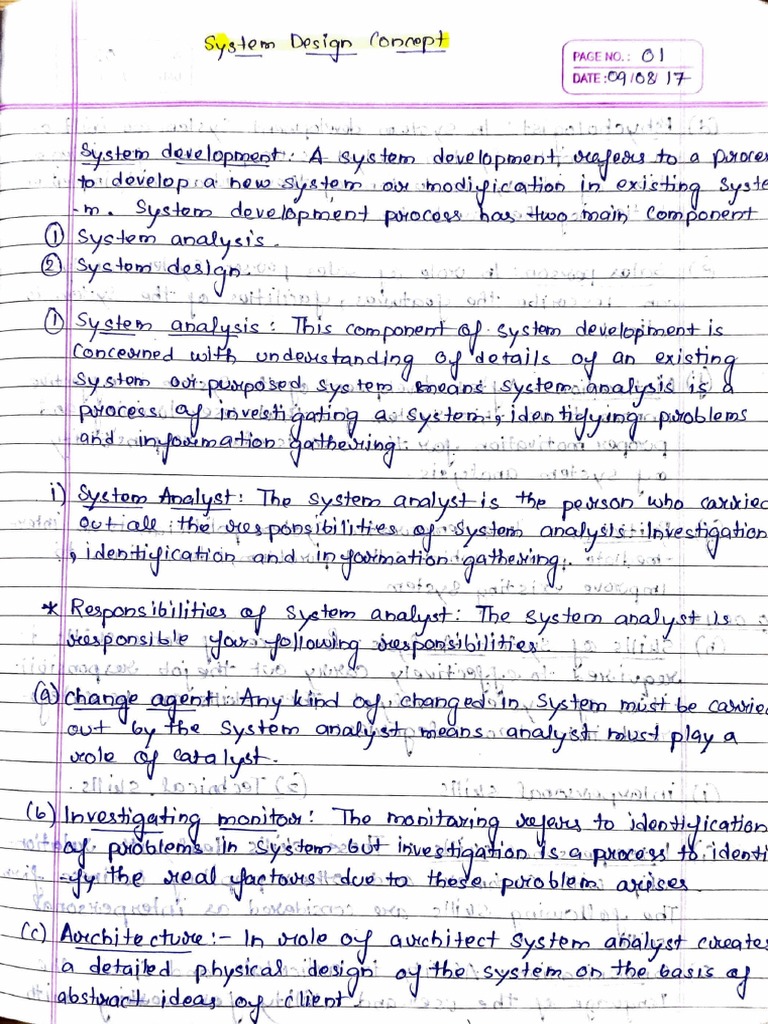 System Design Concept
PAGE NO.: 01
DATE: 09/08/17
System development: A system development, refers to a proces
to develop a new system or modification in existing Syste
-m. System development process has two main component
① System analysis.
② System design.
① System analysis: This component of system development is
concerned with understanding of details of an existing
system or purposed system means system analysis is a
process of investigating a system, identifying problems
and information gathering.
i) System Analyst: The system analyst is the person who carried
out all the responsibilities of system analysis Investigation
, identification and information gathering.
* Responsibilities of system analyst: The system analyst is
responsible for following responsibilities
(a) change agent: Any kind of changed in system must be carried
out by the system analyst means analyst must play a
role of catalyst.
(b) Investigating monitor: The monitoring refers to identification
of problems in system but investigation is a process to identi
-fy the real factors due to these problem arises.
(c) Architecture:- In role of architect system analyst creates
a detailed physical design of the system on the basis of
abstract ideas of client